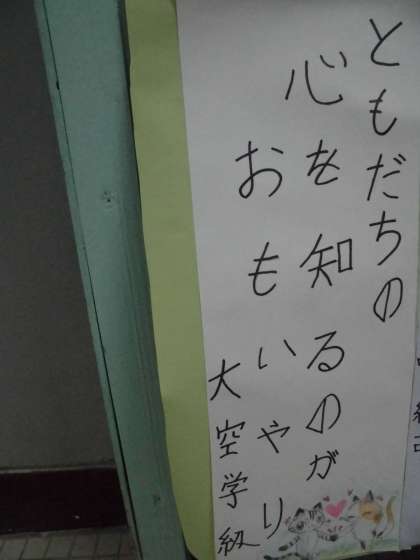 ともだちの
心を知るのが
おもいやり
大空学級